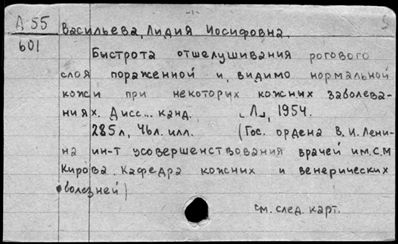 А 55
601
Васильева, Лидия Иосифовна.
Быстрота отшелушивания рогового
слоя пораженной и, видимо нормальной
кожи при некоторих кожних заболева-
ниях. Дисс... канд. Л., 1954.
285 л, 46л. илл. (Гос. ордена В. И. Лени-
на ин-т усовершенствования врачей им. С.М
Кирова. Кафедра кожних и венерических
болезней)
см. след. карт.